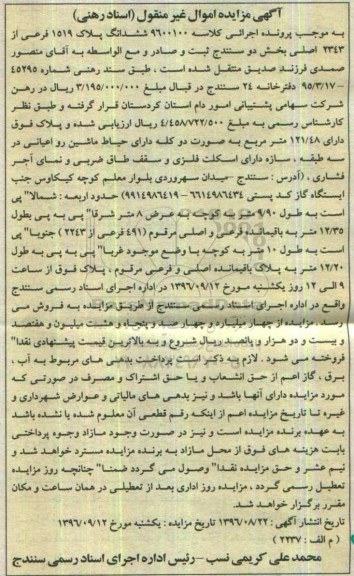 آگهی مزایده اموال غیر منقول (اسناد رهنی)
به موجب پرونده اجرائی کلاسه ۹۶۰۰۱۰۰ ششدانگ پلاک ۱۵۱۹ فرعی از
۲۳۴۳ اصلی بخش دو سنندج ثبت و صادر و مع الواسطه به آقای منصور
صمدی فرزند صدیق منتقل شده است، طبق سند رهنی شماره ۴۵۲۹۵
-۹۵/۳/۱۷ دفترخانه ۲۴ سنندج در قبال مبلغ ۳/۱۹۵/۰۰۰/۰۰۰ ریال در رهن
شرکت سهامی پشتیبانی امور دام استان کردستان قرار گرفته و طبق نظر
کارشناس رسمی به مبلغ ۴/۴۵۸/۷۲۲/۵۰۰ ریال ارزیابی شده و پلاک فوق
دارای ۱۲۱/۴۸ متر مربع به صورت دو کله دارای حیاط ماشین رو اعیانی در
سه طبقه، سازه دارای اسکلت فلزی و سقف طاق ضربی و نمای آجر
فشاری، (آدرس: سنندج -میدان سهروردی بلوار معلم کوچه کیکاوس جنب
ایستگاه گاز کد پستی ۶۶۱۴۹۸۶۴۳۴-۹۹۱۴۹۸۶۴۱۹) حدود اربعه: شمالا" پی
است به طول ۹/۹۰ متر به کوچه به عرض ۸ متر شرقا" پی به پی بطول
۱۲/۳۵ متر به باقیمانده فرعی و اصلی مرقوم (۴۹۱ فرعی از ۲۲۴۳) جنوبا" پی
است به طول ۱۰ متر به کوچه با وضع موجود غربا" پی به پی به طول
۱۲/۲۰ متر به پلاک باقیمانده اصلی و فرعی مرقوم، پلاک فوق از ساعت
۹ الی ۱۲ روز یکشنبه مورخ ۱۳۹۶/۰۹/۱۲ در اداره اجرای اسناد رسمی سنندج
واقع در اداره اجرای اسناد رسمی سنندج از طریق مزایده به فروش می
رسد. مزایده از چهار میلیارد و چهار صد و پنجاه و هشت میلیون و هفتصد
و بیست و دو هزار و پانصد ریال شروع و به بالاترین قیمت پیشنهادی نقدا"
فروخته می شود. لازم به ذکر است پرداخت بدهی های مربوط به آب،
برق، گاز اعم از حق انشعاب و یا حق اشتراک و مصرف در صورتی که
مورد مزایده دارای آنها باشد و نیز بدهی های مالیاتی و عوارض شهرداری و
غیره تا تاریخ مزایده اعم از اینکه رقم قطعی آن معلوم شده یا نشده باشد
به عهده برنده مزایده است و نیز در صورت وجود مازاد وجوه پرداختی
بابت هزینه های فوق از محل مازاد به برنده مزایده مسترد خواهد شد و
نیم عشر و حق مزایده نقدا" وصول می گردد ضمنا" چنانچه روز مزایده
تعطیل رسمی گردد، مزایده روز اداری بعد از تعطیلی در همان ساعت و مکان
مقرر برگزار خواهد شد.
تاریخ انتشار آگهی: ۱۳۹۶/۰۸/۲۲ تاریخ مزایده: یکشنبه مورخ ۱۳۹۶/۰۹/۱۲
( م الف: ۲۲۳۷ )
محمد علی کریمی نسب -رئیس اداره اجرای اسناد رسمی سنندج